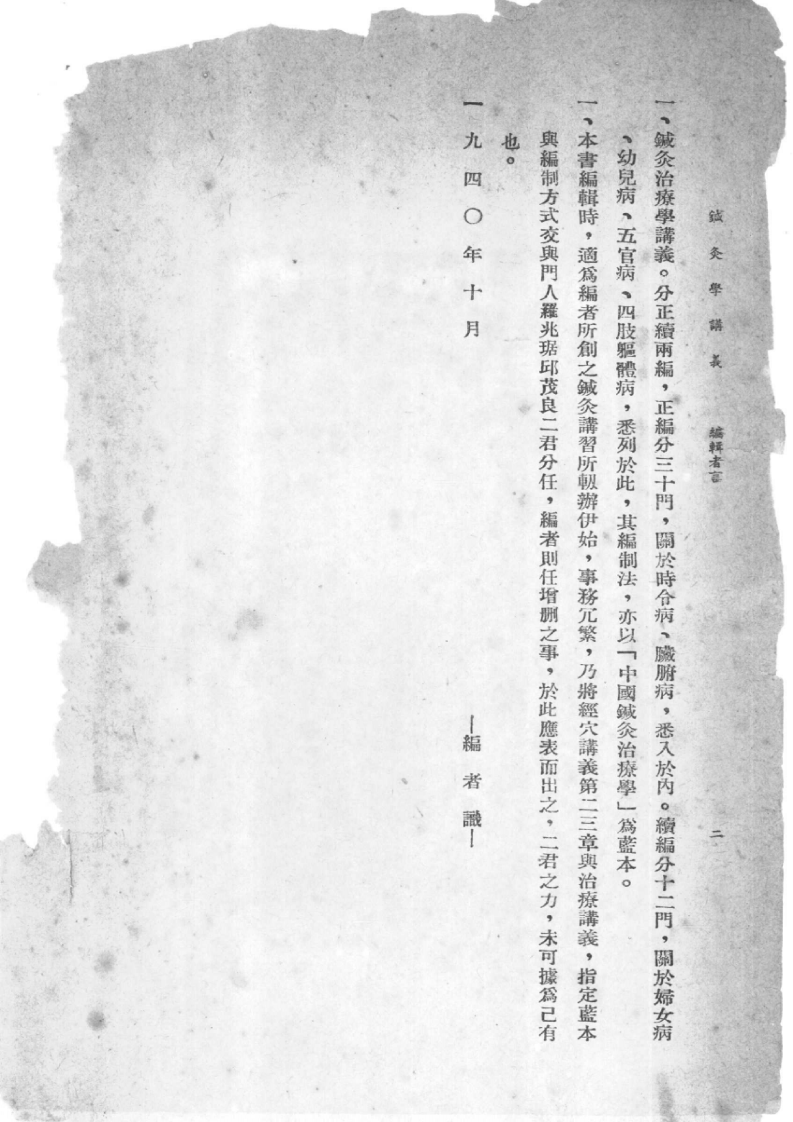 鍼灸學講義　編輯者言　二
一、鍼灸治療學講義。分正續兩編，正編分三十門，關於時令病、臟腑病，悉入於內。續編分十二門，關於婦女病
、幼兒病、五官病、四肢軀體病，悉列於此，其編制法，亦以「中國鍼灸治療學」爲藍本。
一、本書編輯時，適爲編者所創之鍼灸講習所剏辦伊始，事務冗繁，乃將經穴講義第二三章與治療講義，指定藍本
與編制方式交與門人羅兆琚邱茂良二君分任，編者則任增刪之事，於此應表而出之，二君之力，未可據爲己有
也。
一九四〇年十月
—編者識—